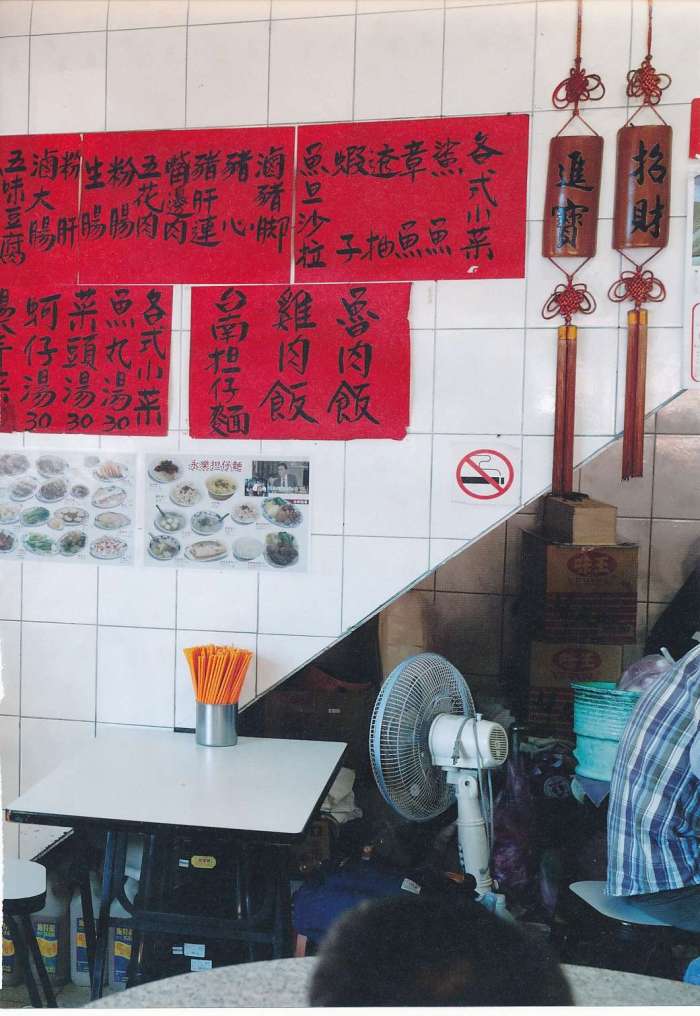 招財
進寶
各式小菜
鯊魚
章魚
透抽
蝦子
魚旦沙拉
滷豬脚
豬心
豬肝連
嘴邊肉
五花肉
粉腸
生腸
粉肝
滷大腸
五味豆腐
魯肉飯
雞肉飯
台南担仔麵
各式小菜
魚丸湯30
菜頭湯30
蚵仔湯30
永業担仔麵
味王
味王